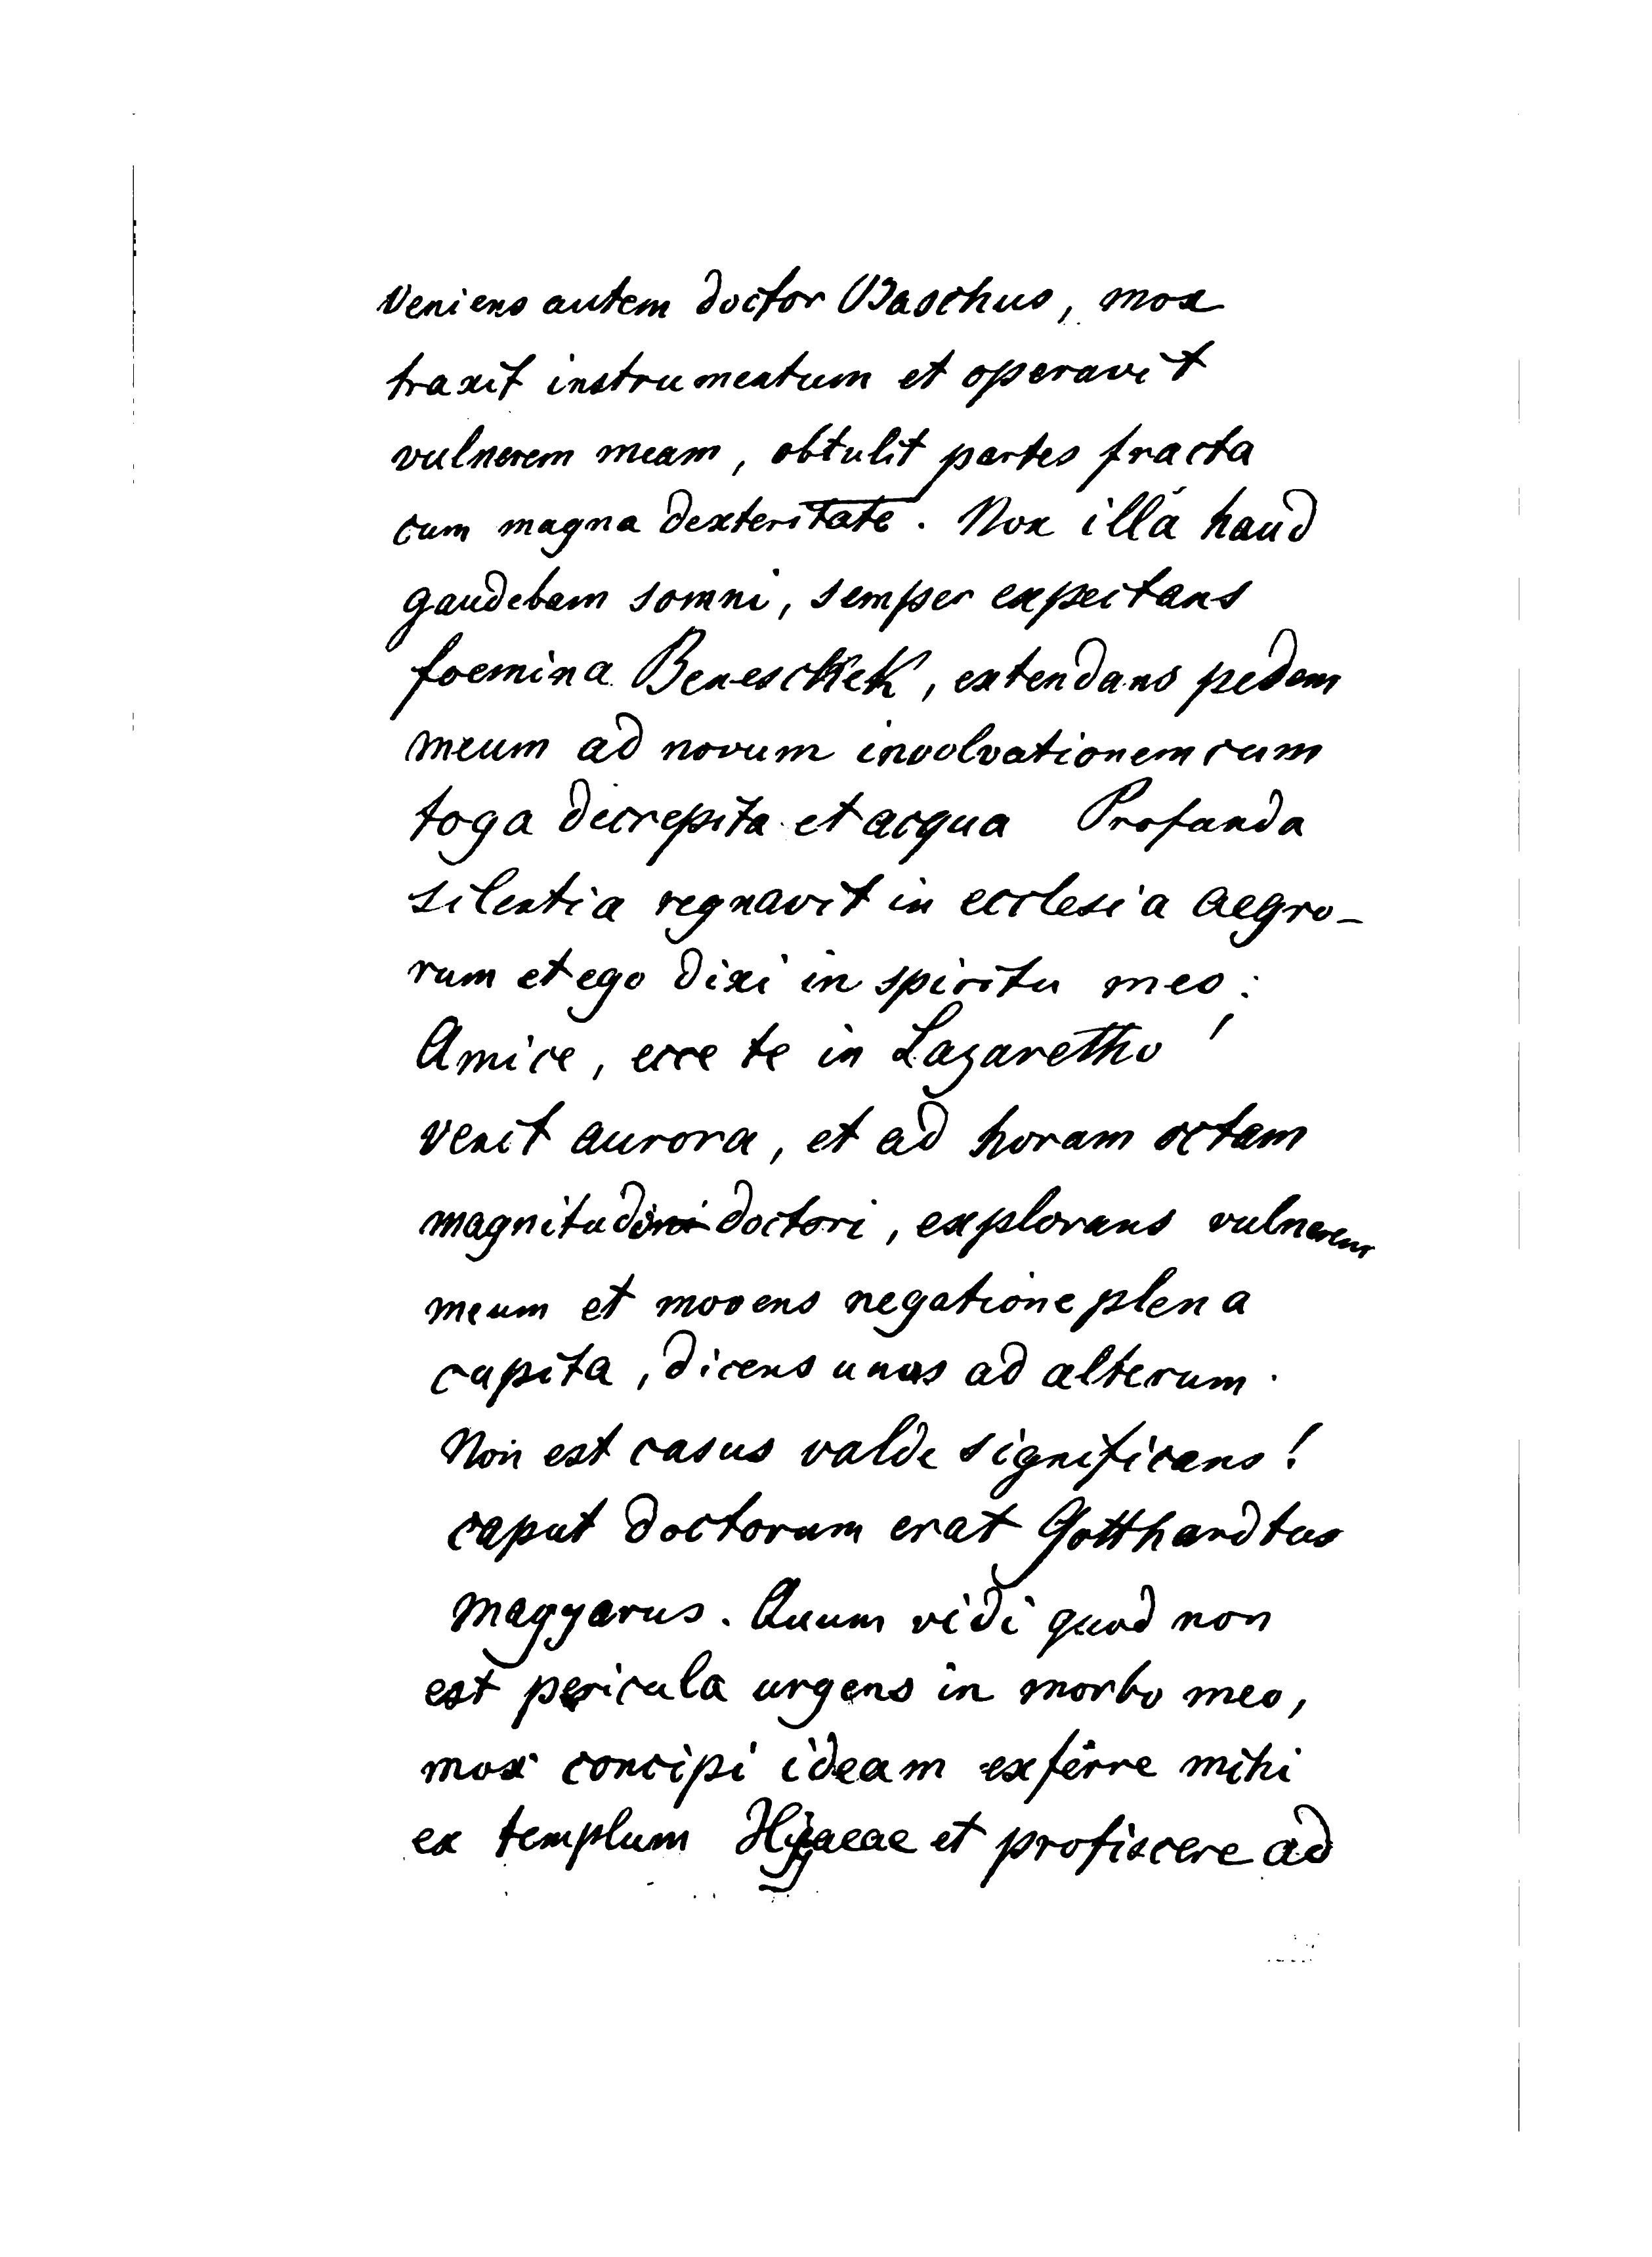 Veniens autem doctor Baschus, mox
traxit instrumentum et operavit
vulnerem meam, obtulit partes fracta
cum magna dexteritate. Nox illá haud
gaudebam somni, semper expectans
foemina Beneschkek, extendans pedem
meum ad novum involvationem cum
toga decrepita et acqua Profunda
silentia regnavit in ecclesia aegro-
rum et ego dixi in spiritu meo:
Amice, ecce te in Lazarettho!
venit aurora, et ad horam octam
magnitudini doctori, explorans vulnerem
meum et movens negatione plena
capita, dicens unus ad alterum.
Non est casus valde significans!
caput doctorum erat Gotthardtus
magyarus. Quum vidi quod non
est pericula urgens in morbo meo,
mox concipi ideam exferre mihi
ex templum Hygaeae et profiscere ad